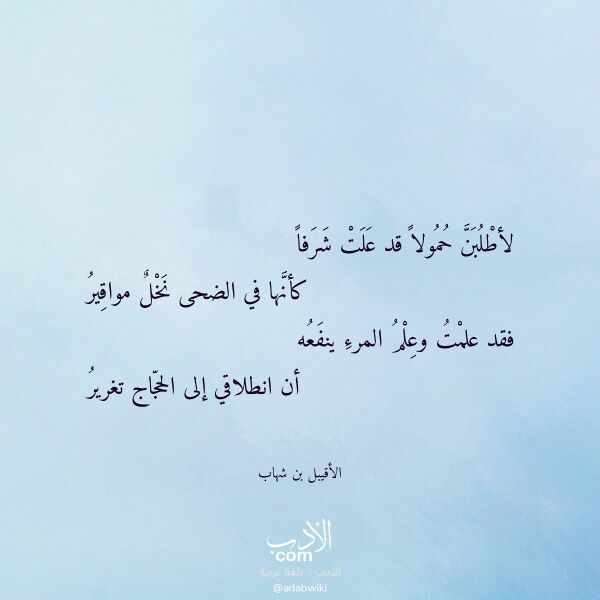 لأطْلُبَنَّ حُمُولاً قد عَلَتْ شَرَفاً
كأنَّها في الضحى نَخْلٌ مواقِيرُ
فقد علمْتُ وعِلْمُ المرءِ ينفَعُه
أن انطلاقي إلى الحجّاج تغريرُ
الأقيبل بن شهاب
الأدب
com
الأدب .. بلغة عربية
@adabwiki